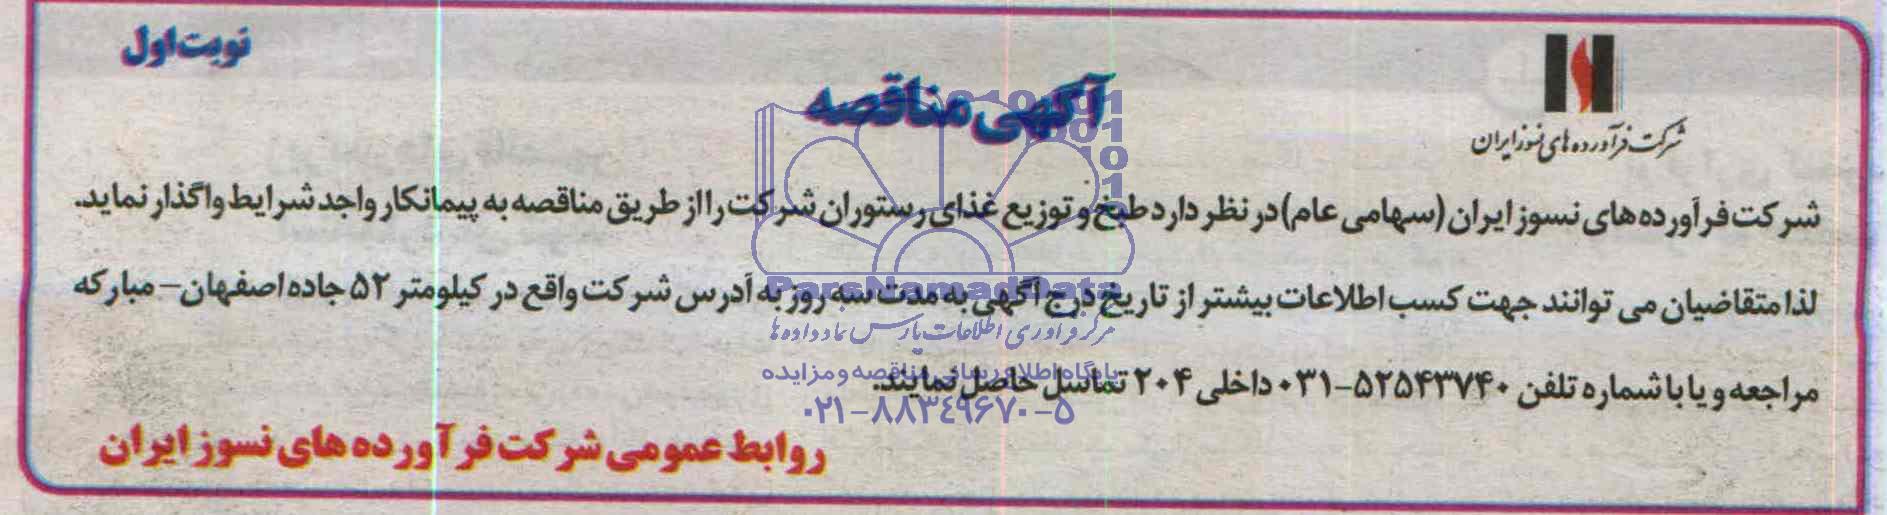 نوبت اول
شرکت فرآورده های نسوز ایران
آگهی مناقصه
شرکت فرآورده های نسوز ایران (سهامی عام) در نظر دارد طبخ و توزیع غذای رستوران شرکت را از طریق مناقصه به پیمانکار واجد شرایط واگذار نماید.
لذا متقاضیان می توانند جهت کسب اطلاعات بیشتر از تاریخ درج آگهی به مدت سه روز به آدرس شرکت واقع در کیلومتر ۵۲ جاده اصفهان - مبارکه
مراجعه و یا با شماره تلفن ۵۲۵۴۳۷۴۰-۰۳۱ داخلی ۲۰۴ تماسل حاصل نمایند.
روابط عمومی شرکت فرآورده های نسوز ایران
ParsNamadData
مرکز فرآوری اطلاعات پارس نماد داده ها
پایگاه اطلاع رسانی مناقصه و مزایده
۰۲۱-۸۸۳۴۹۶۷۰-۵